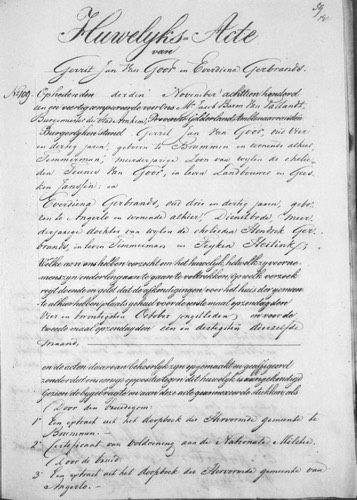 Huwelijks-Acte
van
Gerrit Jan Van Goor en Everdiena Gerbrands.
No. 109. Op heden den derden November achttien honderd
een en veertig compareerde voor ons Mr. Jacob Baron Van Zallandt
Burgemeester der Stad Arnhem, Provincie Gelderland Ambtenaar van den
Burgerlijken stand Gerrit Jan Van Goor, oud Vier
en dertig jaren, geboren te Brummen en wonende alhier,
Timmerman, meerderjarige Zoon van wijlen de eheli-
den Teunis Van Goor, in leven Landbouwer en Gees-
ken Janssen; en
Everdiena Gerbrands, oud drie en dertig jaren, gebo-
ren te Angerlo en wonende alhier, Dienstbode, meer-
derjarige dochter van wijlen de ehelieden Hendrik Ger-
brands, in leven Timmerman en Feyken
Welke aan ons hebben verzocht om het huwelijk, hetwelk zij voorne-
mens zijn onderling aan te gaan te voltrekken, op welk verzoek
regt doende en geld dat de afkondigingen voor het huis der gemeen-
te alhier hebben plaats gehad voor de eerste maal op zondag den
Vier en twintigsten October jongstleden en voor de
tweede maal op zondag den een en dertigsten dierzelfde
maand,
en de acten daarvan behoorlijk zijn opgemaakt en geaffigeerd
zonder dat ons eenige oppositie tegen dit huwelijk is aangekondigd
Gezien de bijgebragte en aan deze acte geannexeerde stukken, als
Door den bruidegom:
1o Een extract uit het doopboek der Hervormde gemeente te
Brummen.
2o Certificaat van voldoening aan de Nationale Militie.
Door de bruid
3o Een extract uit het doopboek der Hervormde gemeente van
Angerlo.